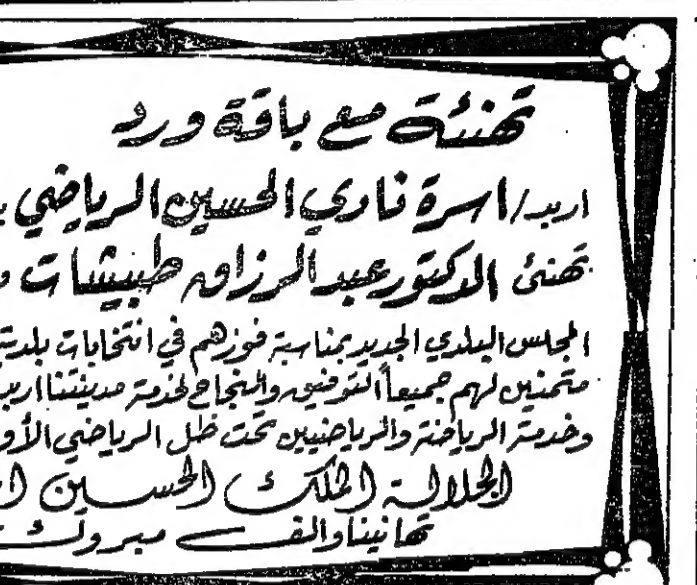 تهنئة مع باقة ورد
اربد/اسرة نادي الحسين الرياضي
تهنئ الدكتور عبد الرزاق طبيشات
المجلس البلدي الجديد بمناسبة فوزهم في انتخابات بلدية
متمنين لهم جميعاً التوفيق والنجاح لخدمة مدينتنا اربد
وخدمة الرياضة والرياضيين تحت ظل الرياضي الأو
الجلالة الملك الحسين
تهانينا والف مبروك